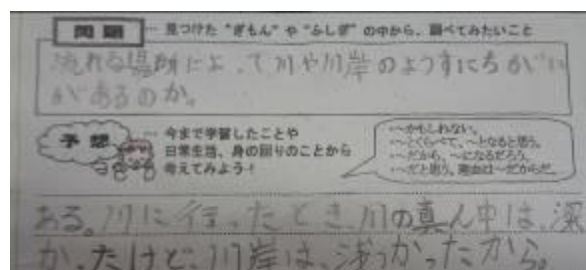 問題 … 見つけた“ぎもん”や“ふしぎ”の中から、調べてみたいこと
流れる場所によって川や川岸のようすにちがい
があるのか。
予想 … 今まで学習したことや
日常生活、身の回りのことから
考えてみよう！
・～かもしれない。
・～とくらべて、～となると思う。
・～だから、～になるだろう。
・～だと思う。理由は～だからだ。
ある。川に行ったとき、川の真ん中は、深
かったけど、川岸は、浅かったから。